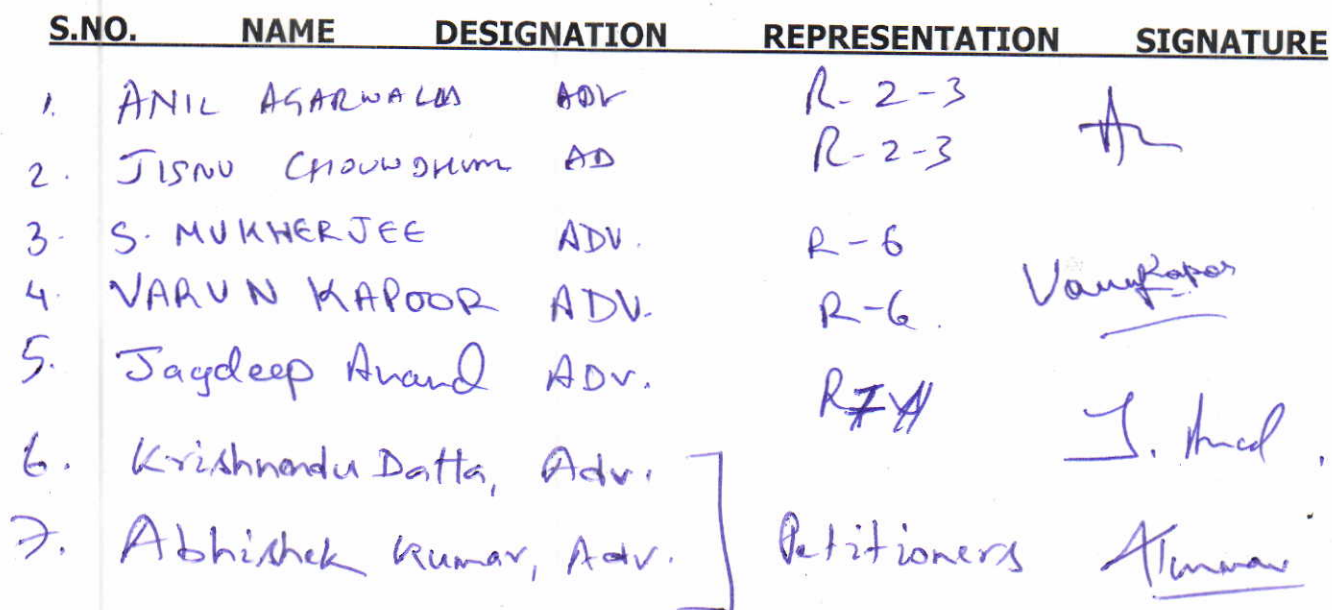 S.NO. NAME DESIGNATION REPRESENTATION SIGNATURE
1. ANIL AGARWALA ADV R-2-3
2. JISNU CHOUWDHURY AD R-2-3
3. S. MUKHERJEE ADV. R-6
4. VARUN KAPOOR ADV. R-6. Varun Kapoor
5. Jagdeep Anand ADV. R7 J. Anand.
6. Krishnendu Datta, Adv.
7. Abhishek Kumar, Adv. Petitioners AKumar